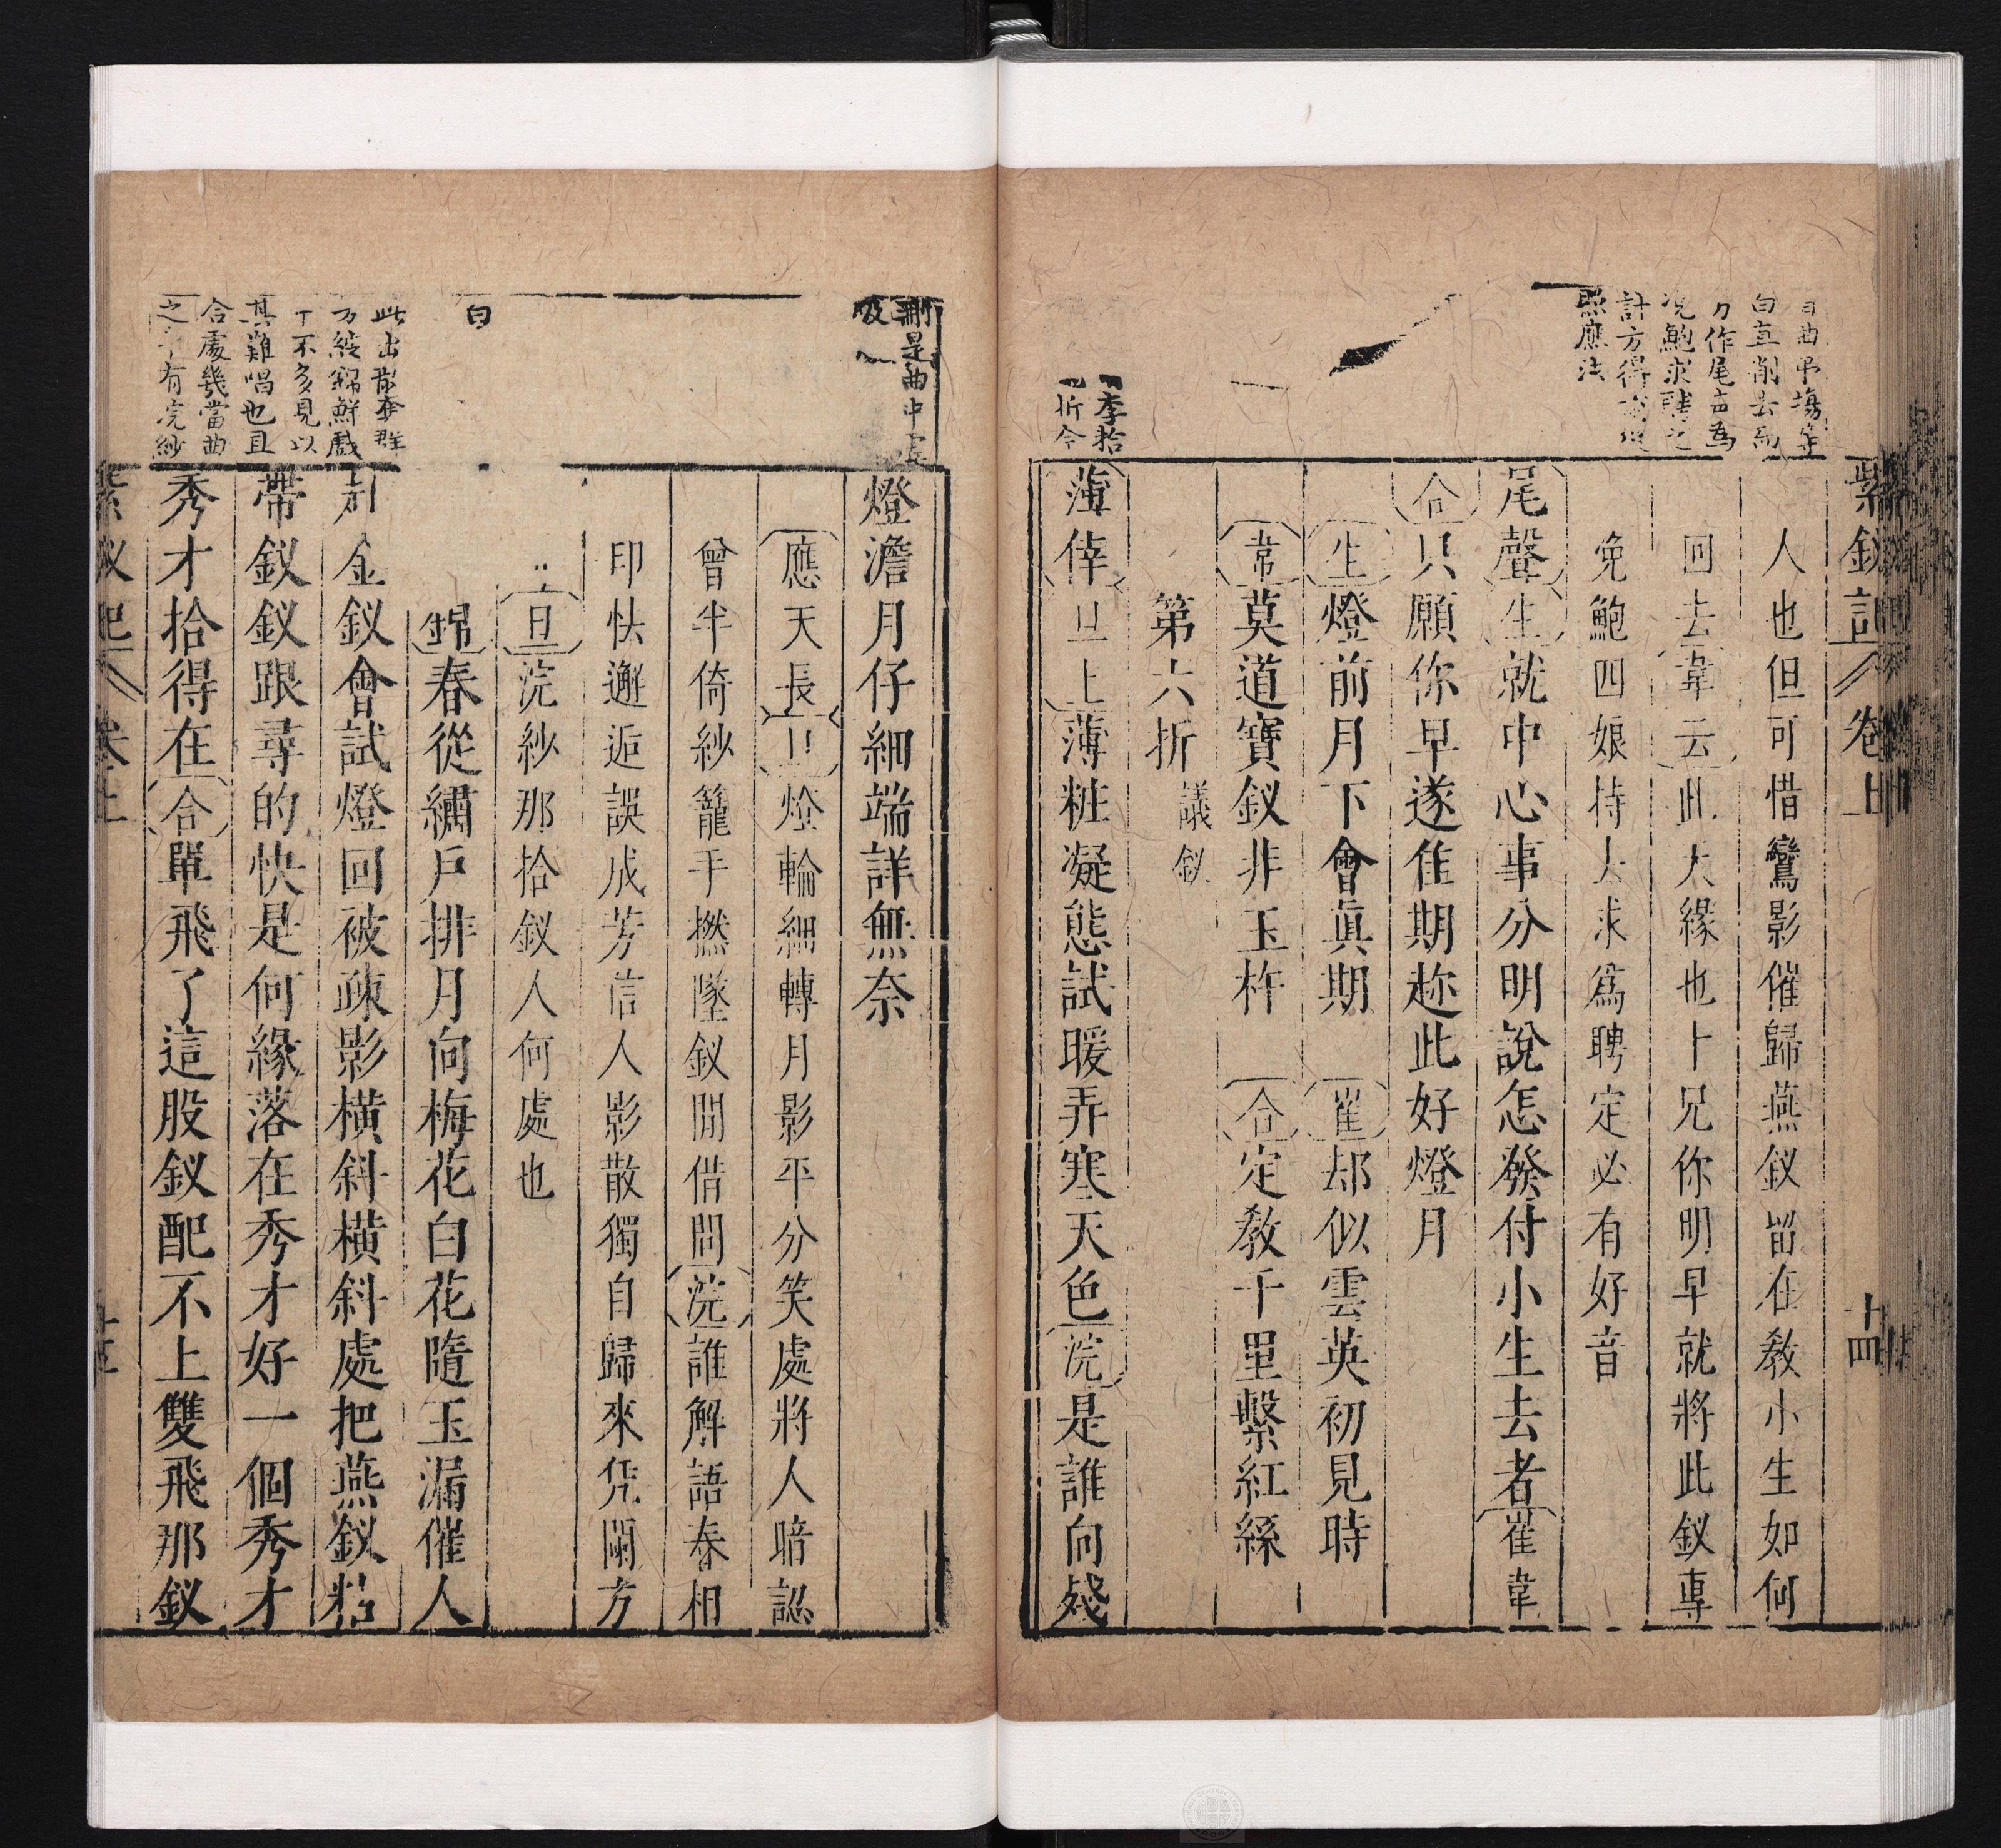 紫釵記 卷上 十四
人也但可惜鸞影催歸燕釵留在教小生如何
回去韋云此大緣也十兄你明早就將此釵專
免鮑四娘持去求爲聘定必有好音
尾聲生就中心事分明說怎發付小生去者崔韋
合只願你早遂佳期趂此好燈月
生燈前月下會眞期 崔却似雲英初見時
常莫道寶釵非玉杵 合定敎千里繫紅絲
第六折 議釵
薄倖旦上薄粧凝態試暖弄寒天色浣是誰向殘
白直削去
作尾声為
況鮑求
計方得
照應法
李拾
折今
燈澹月仔細端詳無奈
應天長旦燈輪細轉月影平分笑處將人暗認
曾半倚紗籠手撚墜釵閒借問浣誰解語春相
印怏邂逅誤成芳信人影散獨自歸來凭闌方
旦浣紗那拾釵人何處也
錦春從繡戶排月向梅花白花隨玉漏催人
金釵會試燈回被疎影橫斜橫斜處把燕釵粘
帶釵釵跟尋的快是何緣落在秀才好一個秀才
秀才拾得在合單飛了這股釵配不上雙飛那釵
刪是曲中
白
此出散套群
不多見以
其難唱也且
合處幾當曲
有浣紗